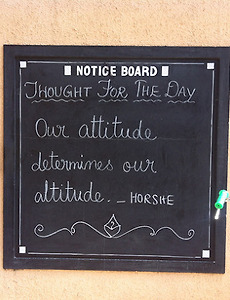 NOTICE BOARD
THOUGHT FOR THE DAY
Our attitude
determines our
altitude. _ HORSHE